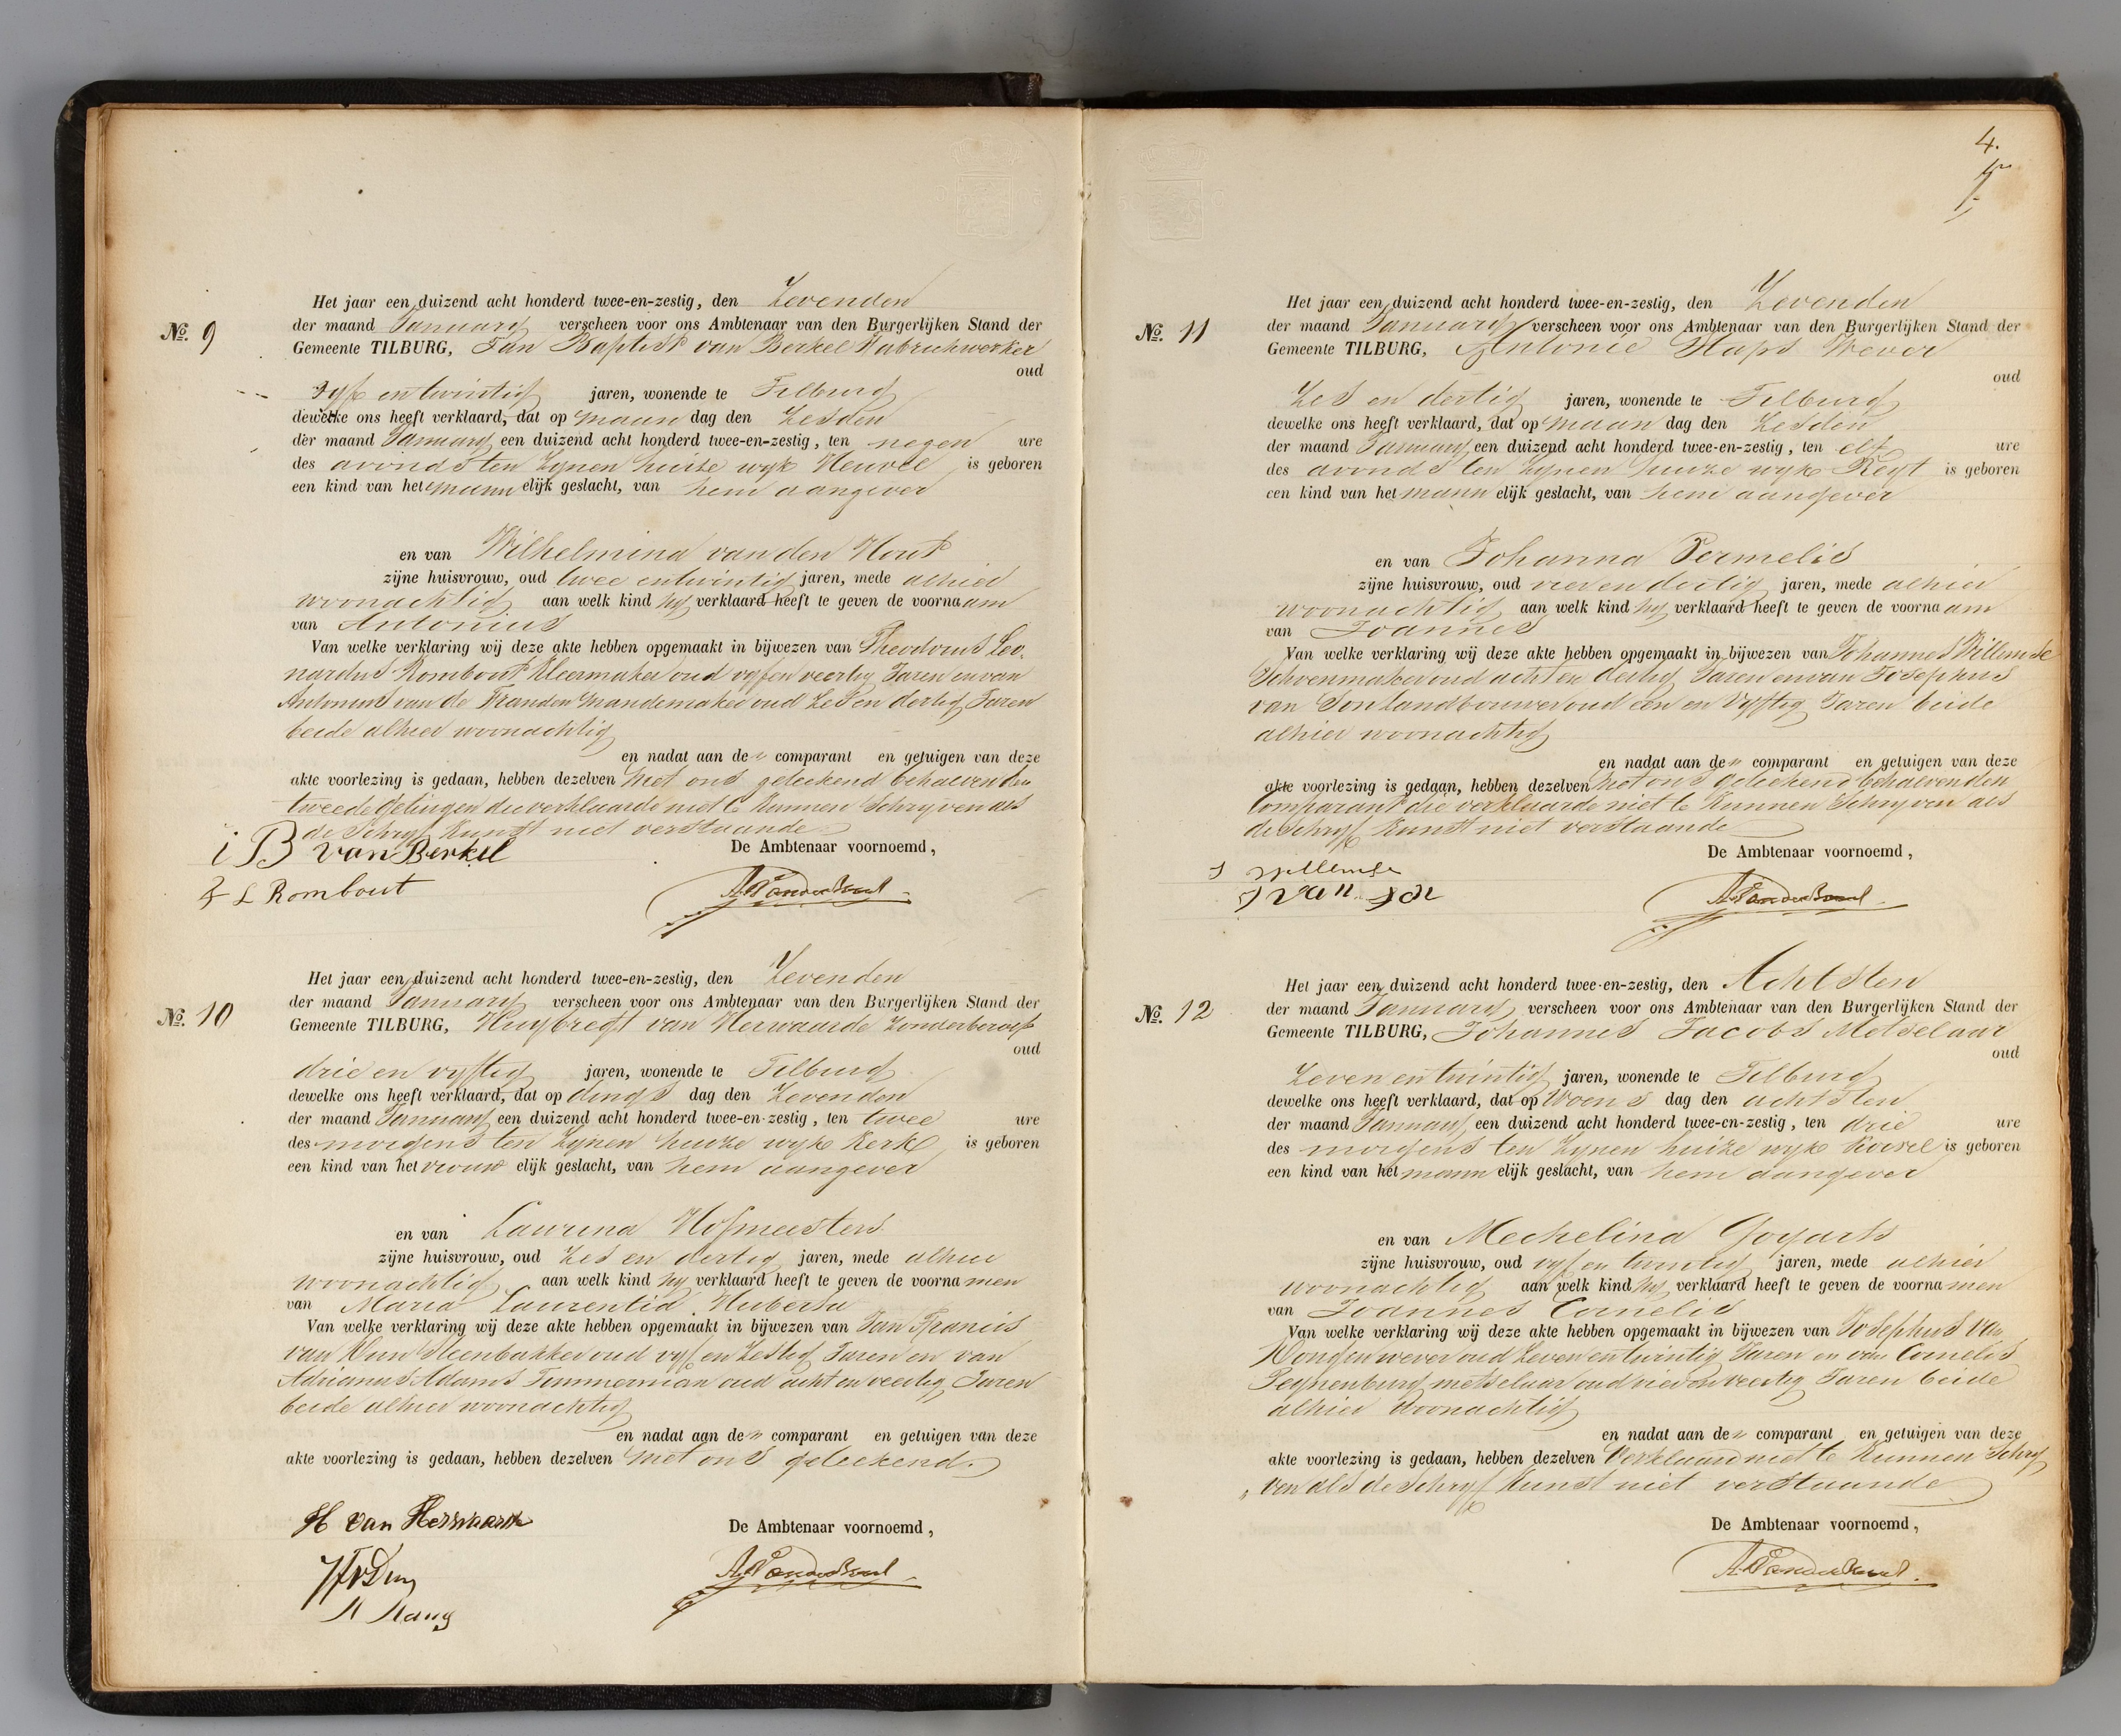 No. 9
Het jaar een duizend acht honderd twee-en-zestig, den Zevenden
der maand Januarij verscheen voor ons Ambtenaar van den Burgerlijken Stand der
Gemeente TILBURG, Jan Baptist van Berkel Fabriekwerker
oud
vijf en twintig jaren, wonende te Tilburg
dewelke ons heeft verklaard, dat op maan dag den Zesden
der maand Januarij een duizend acht honderd twee-en-zestig, ten negen ure
des avonds ten zijnen huize wijk Heuvel is geboren
een kind van het mann elijk geslacht, van hem aangever
en van Wilhelmina van den Hout
zijne huisvrouw, oud twee en twintig jaren, mede alhier
woonachtig aan welk kind hij verklaard heeft te geven de voornaam
van Antonius
Van welke verklaring wij deze akte hebben opgemaakt in bijwezen van Theodorus Leo-
nardus Rombout Kleermaker oud vijf en veertig Jaren en van
Antonius van de mandemaker oud Zes en dertig Jaren
beide alhier woonachtig
en nadat aan de comparant en getuigen van deze
akte voorlezing is gedaan, hebben dezelven met ons geteekend behalven den
tweede getuigen die verklaarde niet te kunnen Schrijven als
de Schrijf Kunst niet verstaande
i B van Berkel
De Ambtenaar voornoemd,
L Rombout
No. 10
Het jaar een duizend acht honderd twee-en-zestig, den Zevenden
der maand Januarij verscheen voor ons Ambtenaar van den Burgerlijken Stand der
Gemeente TILBURG, Huijbregt van Herwaarde Zonderberoep
oud
drie en vijftig jaren, wonende te Tilburg
dewelke ons heeft verklaard, dat op dings dag den Zevenden
der maand Januarij een duizend acht honderd twee-en-zestig, ten twee ure
des morgens ten zijnen huize wijk Kerk is geboren
een kind van het vrouw elijk geslacht, van hem aangever
en van Laurina Hofmeesters
zijne huisvrouw, oud Zes en dertig jaren, mede alhier
woonachtig aan welk kind hij verklaard heeft te geven de voornamen
van Maria Laurentia Huberta
Van welke verklaring wij deze akte hebben opgemaakt in bijwezen van Jan Francis
van Steenbakker oud vijf en Zestig Jaren en van
Adrianus Adams Timmerman oud acht en veertig Jaren
beide alhier woonachtig
en nadat aan de comparant en getuigen van deze
akte voorlezing is gedaan, hebben dezelven met ons geteekend.
H van Herwaarde
De Ambtenaar voornoemd,
4.
No. 11
Het jaar een duizend acht honderd twee-en-zestig, den Zevenden
der maand Januarij verscheen voor ons Ambtenaar van den Burgerlijken Stand der
Gemeente TILBURG, Antonie Haps Wever
oud
Zes en dertig jaren, wonende te Tilburg
dewelke ons heeft verklaard, dat op maan dag den Zesden
der maand Januarij een duizend acht honderd twee-en-zestig, ten elf ure
des avonds ten zijnen huize wijk Reijt is geboren
een kind van het mann elijk geslacht, van hem aangever
en van Johanna Vermelis
zijne huisvrouw, oud vier en dertig jaren, mede alhier
woonachtig aan welk kind hij verklaard heeft te geven de voornaam
van Joannes
Van welke verklaring wij deze akte hebben opgemaakt in bijwezen van Johannes Willemse
Schoenmaker oud acht en dertig Jaren en van Josephus
van Son Landbouwer oud een en Vijftig Jaren beide
alhier woonachtig
en nadat aan de comparant en getuigen van deze
akte voorlezing is gedaan, hebben dezelven met ons geteekend behalven den
Comparant die verklaarde niet te Kunnen Schrijven als
de Schrijf Kunst niet verstaande
De Ambtenaar voornoemd,
J Willemse
J van Son
No. 12
Het jaar een duizend acht honderd twee-en-zestig, den Achtsten
der maand Januarij verscheen voor ons Ambtenaar van den Burgerlijken Stand der
Gemeente TILBURG, Johannes Jacobs Metselaar
oud
Zeven en twintig jaren, wonende te Tilburg
dewelke ons heeft verklaard, dat op Woens dag den achtsten
der maand Januarij een duizend acht honderd twee-en-zestig, ten drie ure
des morgens ten zijnen huize wijk Korvel is geboren
een kind van het mann elijk geslacht, van hem aangever
en van Mechelina Goijarts
zijne huisvrouw, oud vijf en twintig jaren, mede alhier
woonachtig aan welk kind hij verklaard heeft te geven de voornamen
van Joannes Cornelis
Van welke verklaring wij deze akte hebben opgemaakt in bijwezen van Josephus van
Dongen wever oud Zeven en twintig Jaren en van Cornelis
Peijnenburg metselaar oud vier en veertig Jaren beide
alhier woonachtig
en nadat aan de comparant en getuigen van deze
akte voorlezing is gedaan, hebben dezelven Verklaard niet te Kunnen Schrij
ven als de Schrijf Kunst niet verstaande
De Ambtenaar voornoemd,